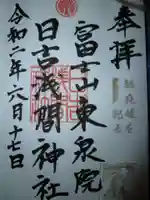 奉拝
富士山東泉院
日吉浅間神社
令和二年六月十七日